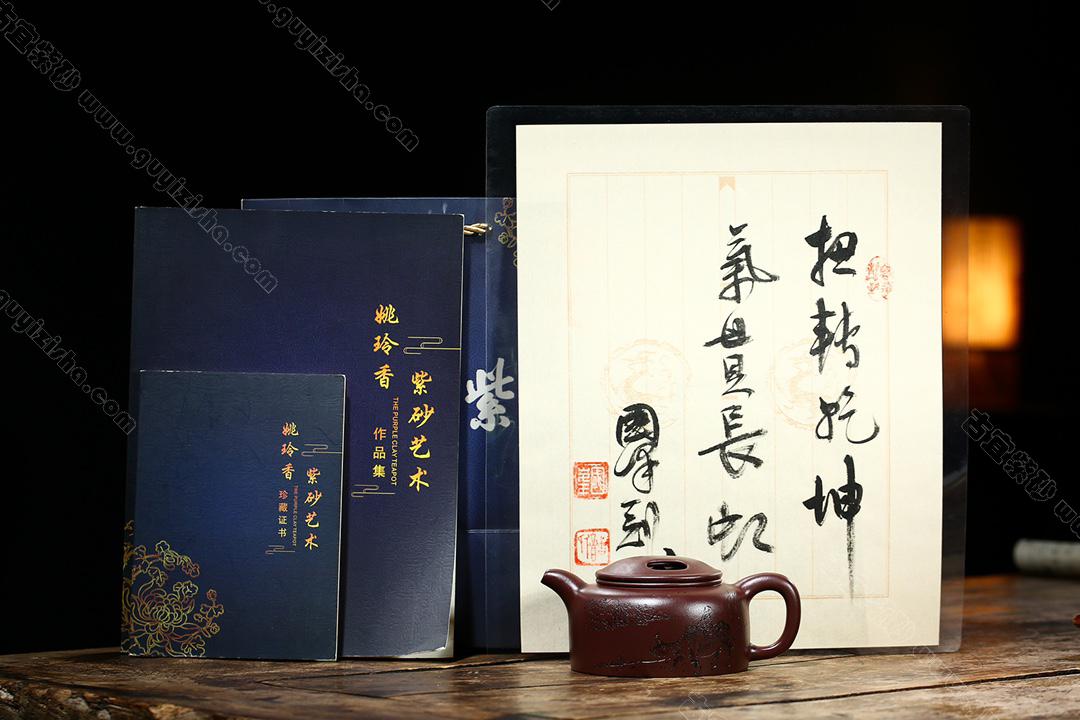 姚玲香
紫砂艺术
THE PURPLE CLAY TEAPOT
珍藏证书
姚玲香
紫砂艺术
THE PURPLE CLAY TEAPOT
作品集
紫
扭轉乾坤
氣貫長虹
古宜紫砂 www.guyizisha.com
www.guyizisha.com
www.guyizisha.com
古宜紫砂